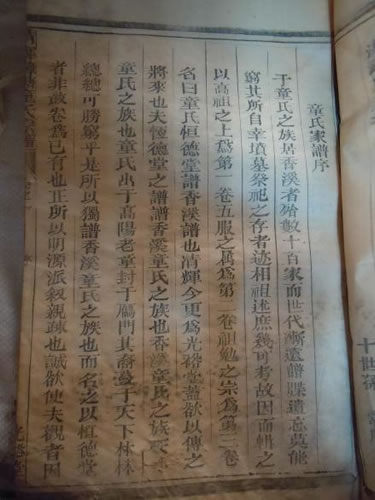 童氏家譜序
于童氏之族居香溪者殆數十百家而世代漸遠譜牒遺忘莫能
窮其所自幸墳墓祭祀之存者迹相祖述庶幾可考故因而輯之
以高祖之上為第一卷五服之屬為第二卷祖免之宗為第三卷
名曰童氏恒德堂譜香溪譜也清輝今更為光裕堂蓋欲以傳之
將來也夫恆德堂之譜譜香溪童氏之族也香溪童氏之族
童氏之族也童氏出于高陽老童封于鴈門其裔蔓于天下林林
總總可勝窮乎是所以獨譜香溪童氏之族也而名之以恒德堂
者非敢卷為已有也正所以明源派敘親疎也誠欲使夫觀者因
十世孫